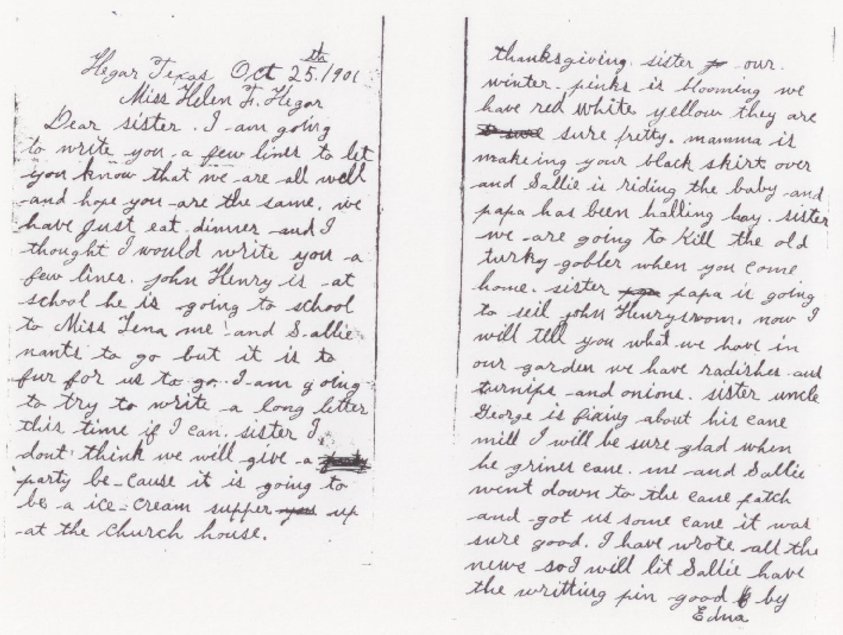 Hegar Texas Oct 25th. 1901
Miss Helen F. Hegar
Dear sister. I am going
to write you a few lines to let
you know that we are all well
and hope you are the same. we
have just eat dinner and I
thought I would write you a
few lines. john Henry is at
school he is going to school
to Miss Lena me and Sallie
nants to go but it is to
fur for us to go. I am going
to try to write a long letter
this time if I can. sister I
dont think we will give a
party be-cause it is going to
be a ice-cream supper up
at the church house.
thanksgiving. sister our
winter pinks is blooming we
have red White yellow they are
sure pretty. mamma is
makeing your black skirt over
and Sallie is riding the baby and
papa has been halling hay. sister
we are going to Kill the old
turky gobler when you come
home. sister papa is going
to seil john Henrysroom. now I
will tell you what we have in
our garden we have radishes and
turnips and onions. sister uncle
George is fixing about his cane
mill I will be sure glad when
he grines cane. me and Sallie
went down to the cane patch
and got us some cane it was
sure good. I have wrote all the
news so I will lit Sallie have
the writting pin good by
Edna